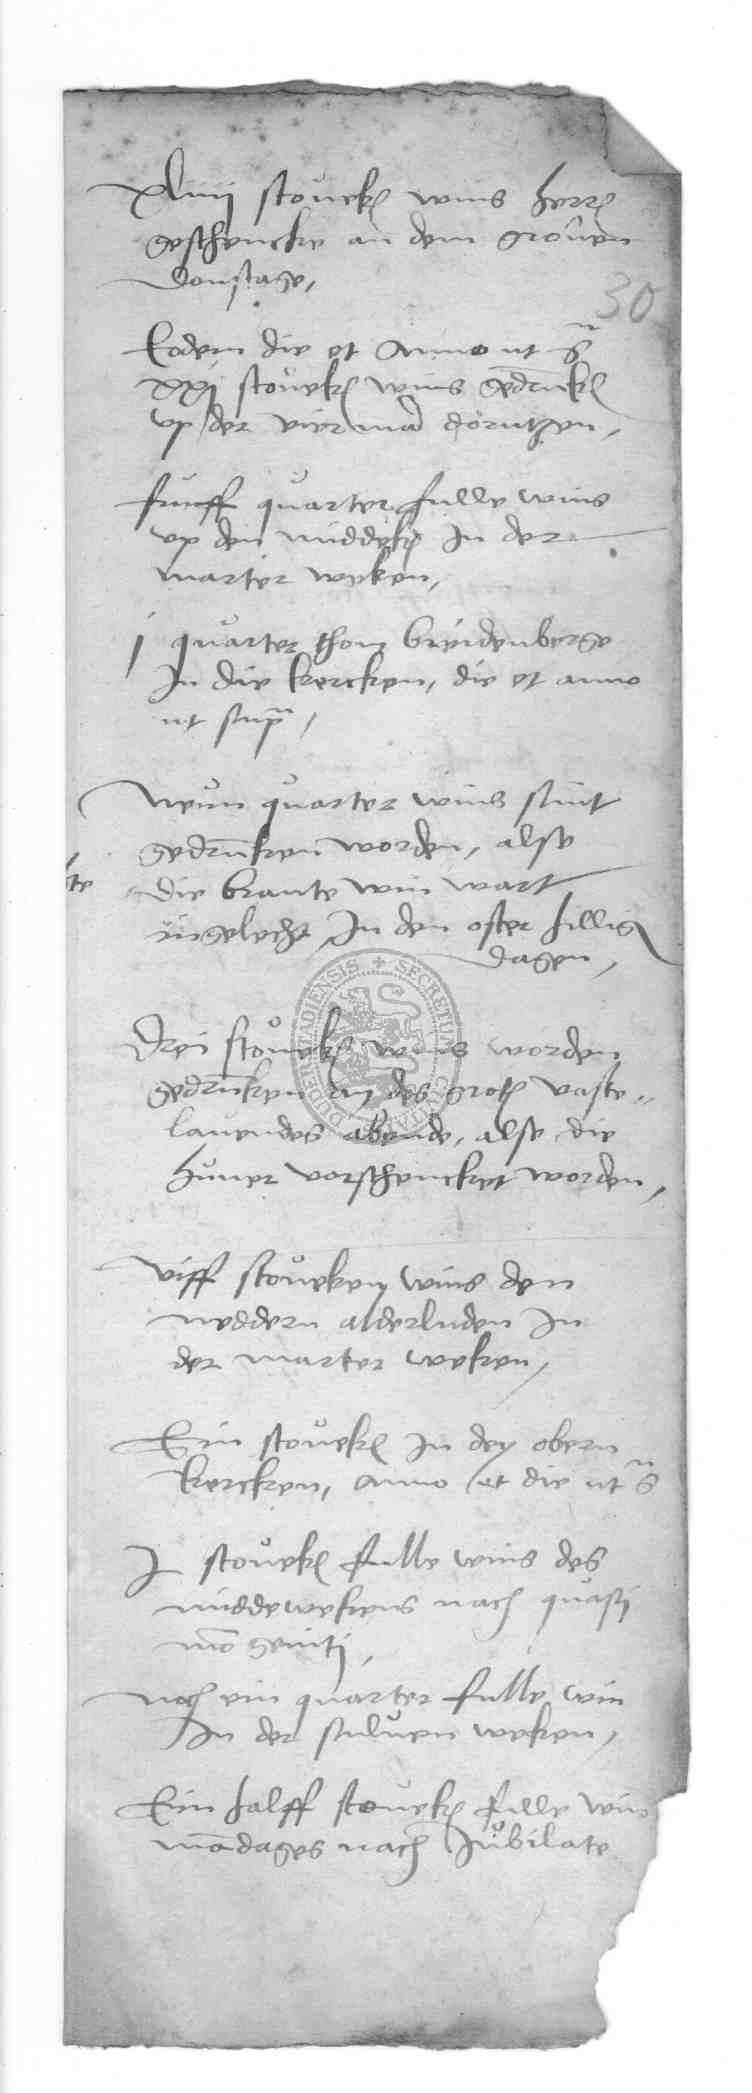 xliiij stoveken wins herrn
geschencke an dem gronen
donstage,
30
Eodem die et Anno ut s
xxj stoveken wins gedruncken
up der vierman dorntzen,
funff quarter fulle wins
up den middeken In der
marter weken,
j quarter thom breidenberge
In die kercken, die et anno
ut supra,
Neun quarter wins sint
gedruncken worden, alse
te die brante win wart
ingelecht, In den oster hilligen
dagen,
Drei stoveken wins worden
gedruncken an des groten vaste
lavendes abende, alse die
huner vorschencket worden,
Viff stoveken wins den
neddern alderluden In
der marter weken,
Ein stoveken In den obern
kercken, anno et die ut s
I stoveken fulle wins des
middewekens nach quasi
mo geniti,
noch ein quarter fulle win
In der sulven weken,
Ein halff stoveken fulle wins
mandages nach Jubilate
SECRETUM CIVITATIS DUDERSTADIENSIS